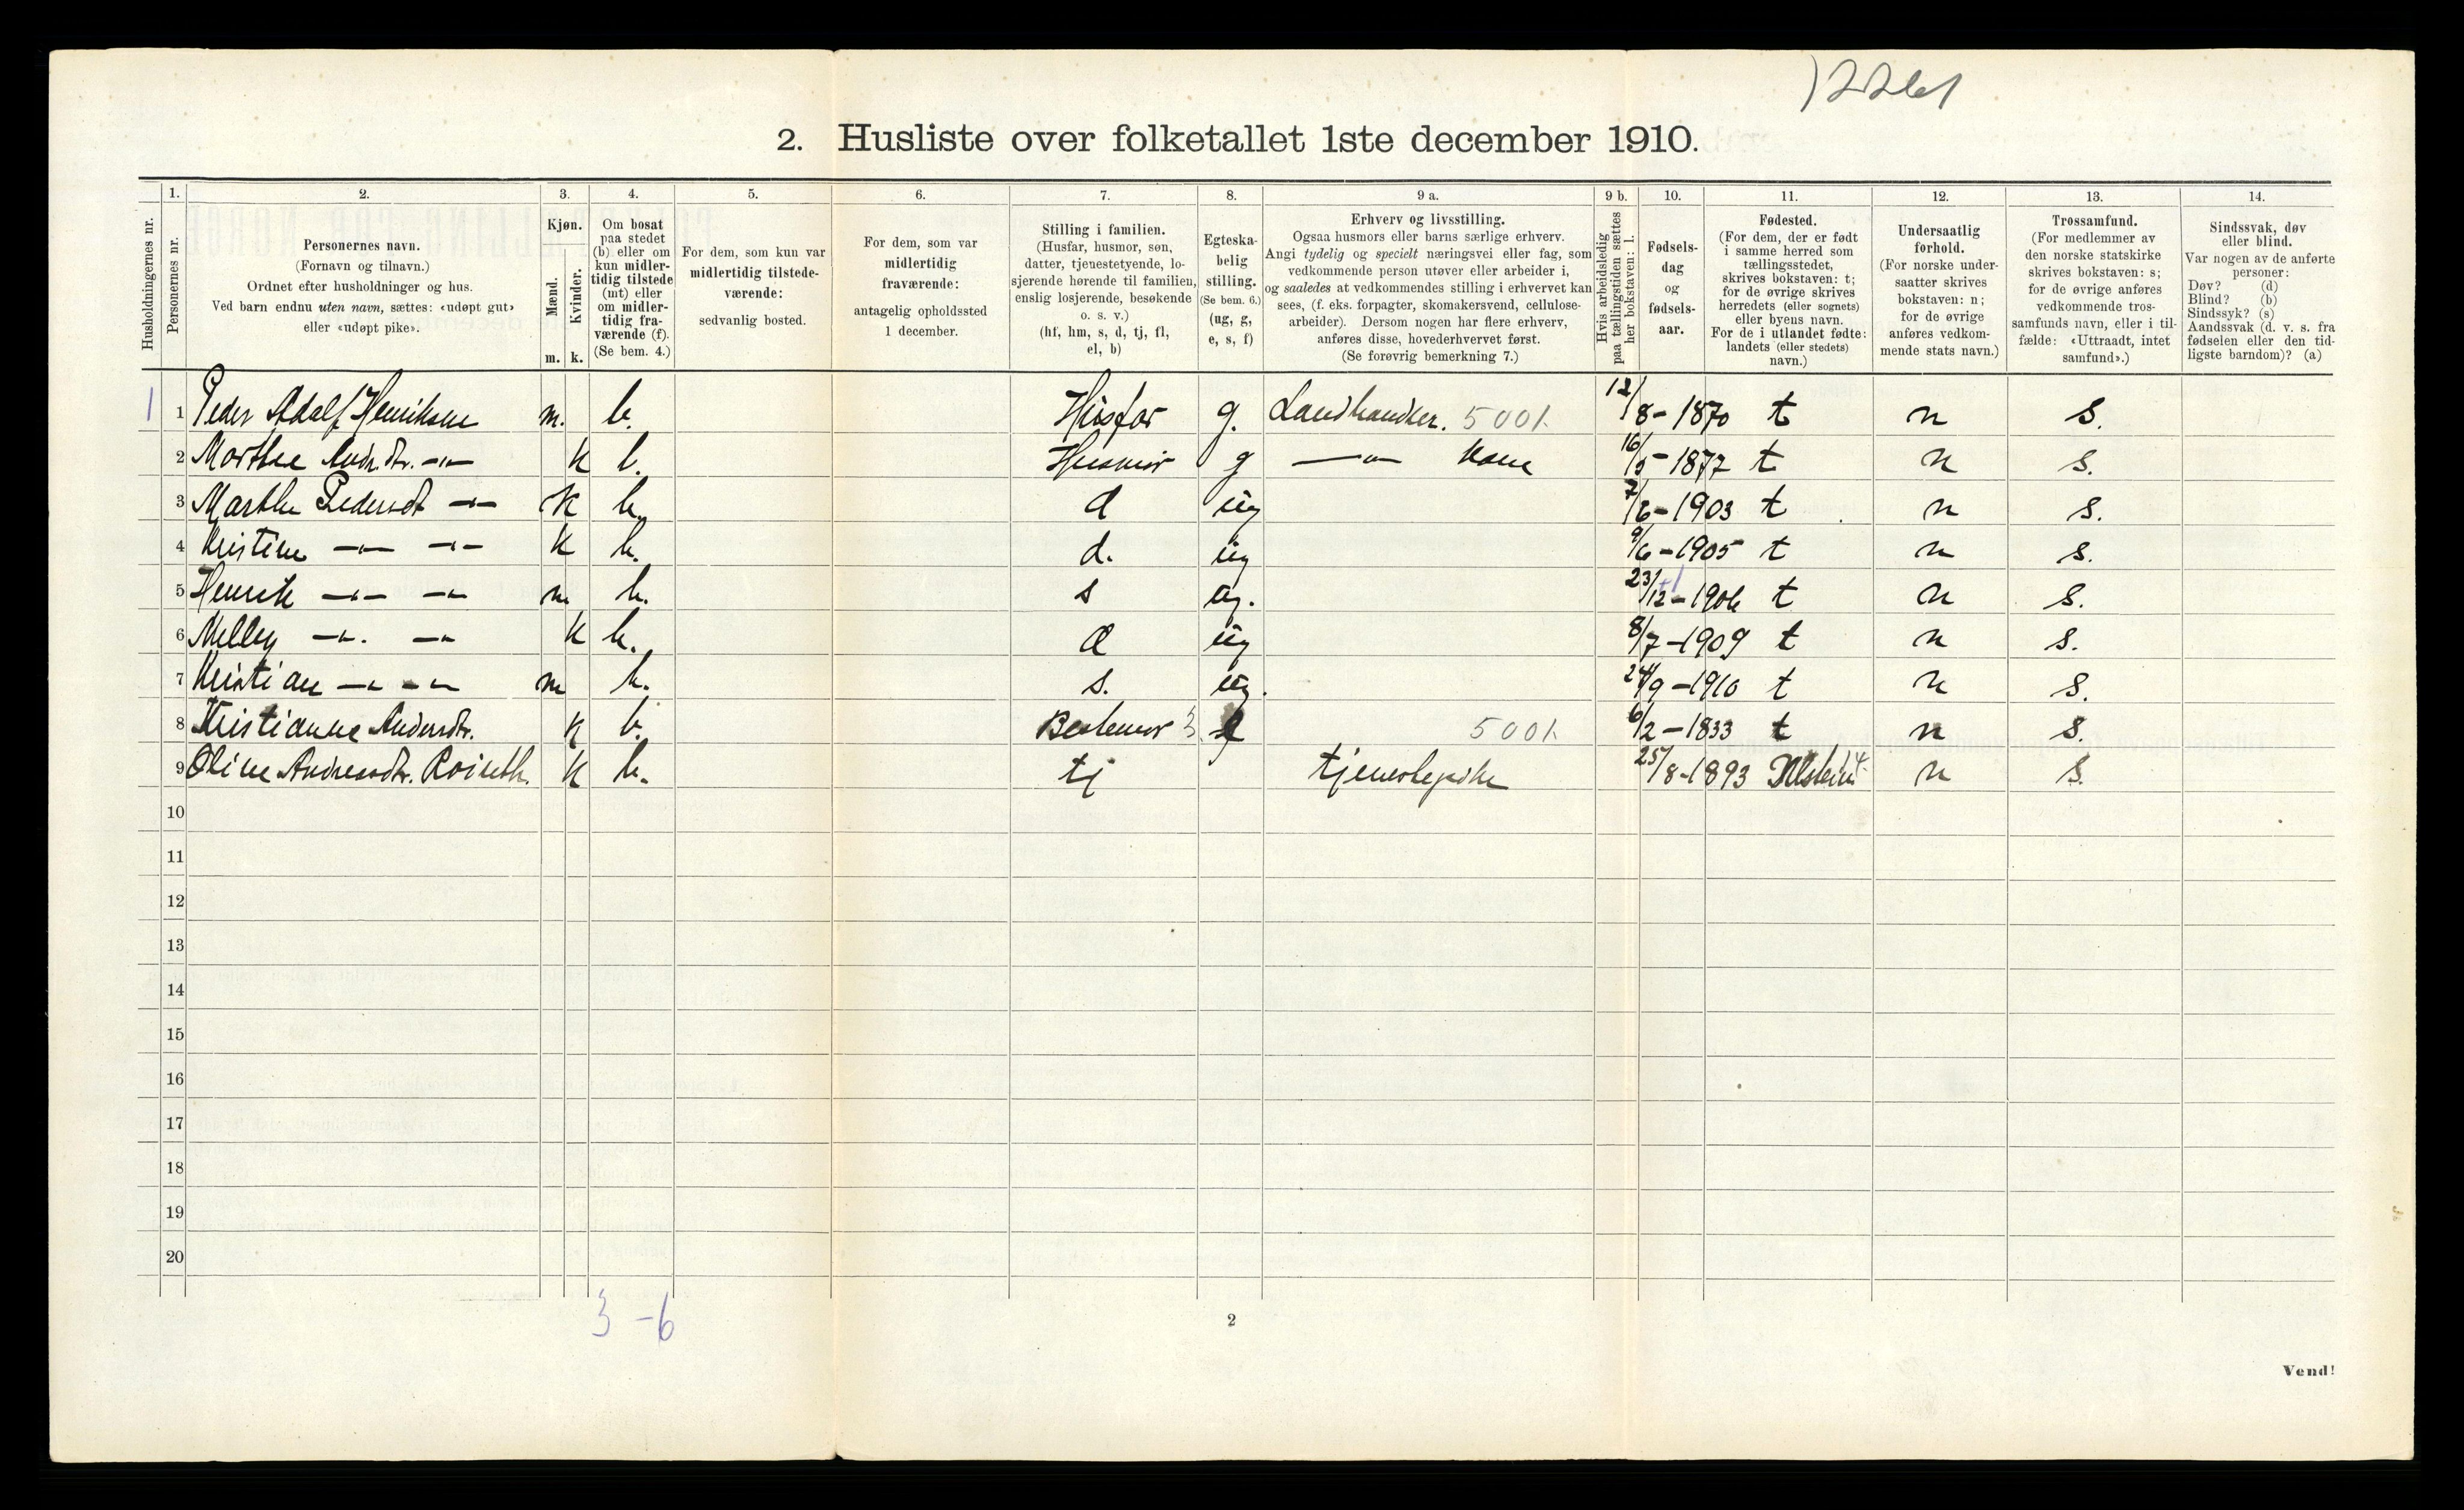 2. Husliste over folketallet 1ste december 1910.
1. 2. 3. 4. 5. 6. 7. 8. 9 a. 9 b. 10. 11. 12. 13. 14.
Husholdningernes nr.
Personernes nr.
Personernes navn.
(Fornavn og tilnavn.)
Ordnet efter husholdninger og hus.
Ved barn endnu uten navn, sættes: «udøpt gut»
eller «udøpt pike».
Kjøn.
Mænd.
Kvinder.
m. k.
Om bosat
paa stedet
(b) eller om
kun midler-
tidig tilstede
(mt) eller
om midler-
tidig fra-
værende (f).
(Se bem. 4.)
For dem, som kun var
midlertidig tilstede-
værende:
sedvanlig bosted.
For dem, som var
midlertidig
fraværende:
antagelig opholdssted
1 december.
Stilling i familien.
(Husfar, husmor, søn,
datter, tjenestetyende, lo-
sjerende hørende til familien,
enslig losjerende, besøkende
o. s. v.)
(hf, hm, s, d, tj, fl,
el, b)
Egteska-
belig
stilling.
(Se bem. 6.)
(ug, g,
e, s, f)
Erhverv og livsstilling.
Ogsaa husmors eller barns særlige erhverv.
Angi tydelig og specielt næringsvei eller fag, som
vedkommende person utøver eller arbeider i,
og saaledes at vedkommendes stilling i erhvervet kan
sees, (f. eks. forpagter, skomakersvend, cellulose-
arbeider). Dersom nogen har flere erhverv,
anføres disse, hovederhvervet først.
(Se forøvrig bemerkning 7.)
Hvis arbeidsledig
paa tællingstiden sættes
her bokstaven: l.
Fødsels-
dag
og
fødsels-
aar.
Fødested.
(For dem, der er født
i samme herred som
tællingsstedet,
skrives bokstaven: t;
for de øvrige skrives
herredets (eller sognets)
eller byens navn.
For de i utlandet fødte:
landets (eller stedets)
navn.)
Undersaatlig
forhold.
(For norske under-
saatter skrives
bokstaven: n;
for de øvrige
anføres vedkom-
mende stats navn.)
Trossamfund.
(For medlemmer av
den norske statskirke
skrives bokstaven: s;
for de øvrige anføres
vedkommende tros-
samfunds navn, eller i til-
fælde: «Uttraadt, intet
samfund».)
Sindssvak, døv
eller blind.
Var nogen av de anførte
personer:
Døv? (d)
Blind? (b)
Sindssyk? (s)
Aandssvak (d. v. s. fra
fødselen eller den tid-
ligste barndom)? (a)
1 1 Peder Adolf Henriksen m. b. Husfar g. Landhandler. 5001. 12/8-1870 t n s.
2 Marthe Andr.dtr. -"- k b. Husmor g -"- kone 16/5-1877 t n s.
3 Marthe Pedersdt -"- k b. d ug 7/6-1903 t n s.
4 Kristine -"- -"- k b. d. ug 9/6-1905 t n s.
5 Henrik -"- -"- m b. s ug. 23/12-1906 t n s.
6 Melley -"- -"- k b. d ug 8/7-1909 t n s.
7 Kristian -"- -"- m b. s. ug. 24/9-1910 t n s.
8 Kristianne Andersdtr. k b. Bestemor e 5001. 6/2-1833 t n s.
9 Oline Andreasdtr. k b. tj tjenestepike 25/8-1893 n s.
10
11
12
13
14
15
16
17
18
19
20
3-6
2
Vend!